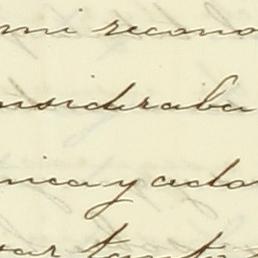 mi recono
nsideraba
nica y ado
tanto